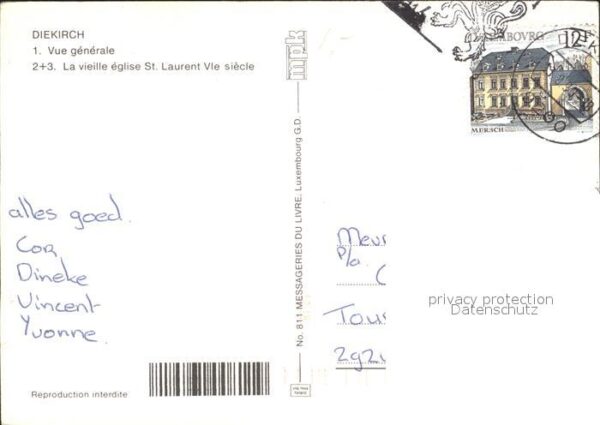 DIEKIRCH
1. Vue générale
2+3. La vieille église St. Laurent VIe siècle
mpk
No. 811 MESSAGERIES DU LIVRE, Luxembourg G.D.
12F
MERSCH
alles goed.
Cor
Dineke
Vincent
Yvonne
P/a
privacy protection
Datenschutz
Reproduction interdite